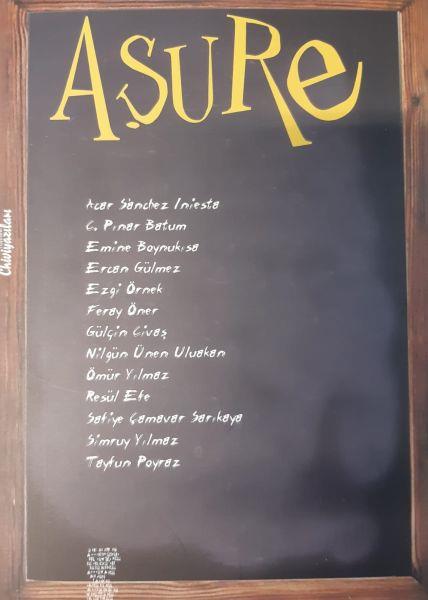 AŞURe
Acar Sànchez Iniesta
Ç. Pınar Batum
Emine Boynukısa
Ercan Gülmez
Ezgi Örnek
Feray Öner
Gülçin Civaş
Nilgün Ünen Uluakan
Ömür Yılmaz
Resül Efe
Safiye Çamavar Sarıkaya
Simruy Yılmaz
Tayfun Poyraz
Chiviyazıları